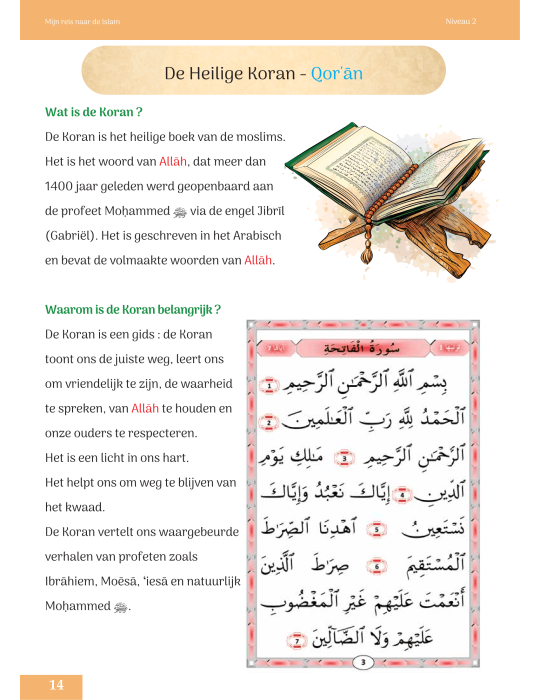 Mijn reis naar de Islam
Niveau 2
De Heilige Koran - Qor'ān
Wat is de Koran ?
De Koran is het heilige boek van de moslims.
Het is het woord van Allāh, dat meer dan
1400 jaar geleden werd geopenbaard aan
de profeet Moḥammed ﷺ via de engel Jibrīl
(Gabriël). Het is geschreven in het Arabisch
en bevat de volmaakte woorden van Allāh.
Waarom is de Koran belangrijk ?
De Koran is een gids : de Koran
toont ons de juiste weg, leert ons
om vriendelijk te zijn, de waarheid
te spreken, van Allāh te houden en
onze ouders te respecteren.
Het is een licht in ons hart.
Het helpt ons om weg te blijven van
het kwaad.
De Koran vertelt ons waargebeurde
verhalen van profeten zoals
Ibrāhiem, Moēsā, ‘iesā en natuurlijk
Moḥammed ﷺ.
سُورَةُ الْفَاتِحَةِ
بِسْمِ ٱللَّهِ ٱلرَّحْمَٰنِ ٱلرَّحِيمِ 1
ٱلْحَمْدُ لِلَّهِ رَبِّ ٱلْعَٰلَمِينَ 2
ٱلرَّحْمَٰنِ ٱلرَّحِيمِ 3 مَٰلِكِ يَوْمِ
ٱلدِّينِ 4 إِيَّاكَ نَعْبُدُ وَإِيَّاكَ
نَسْتَعِينُ 5 ٱهْدِنَا ٱلصِّرَٰطَ
ٱلْمُسْتَقِيمَ 6 صِرَٰطَ ٱلَّذِينَ
أَنْعَمْتَ عَلَيْهِمْ غَيْرِ ٱلْمَغْضُوبِ
عَلَيْهِمْ وَلَا ٱلضَّآلِّينَ 7
3
14